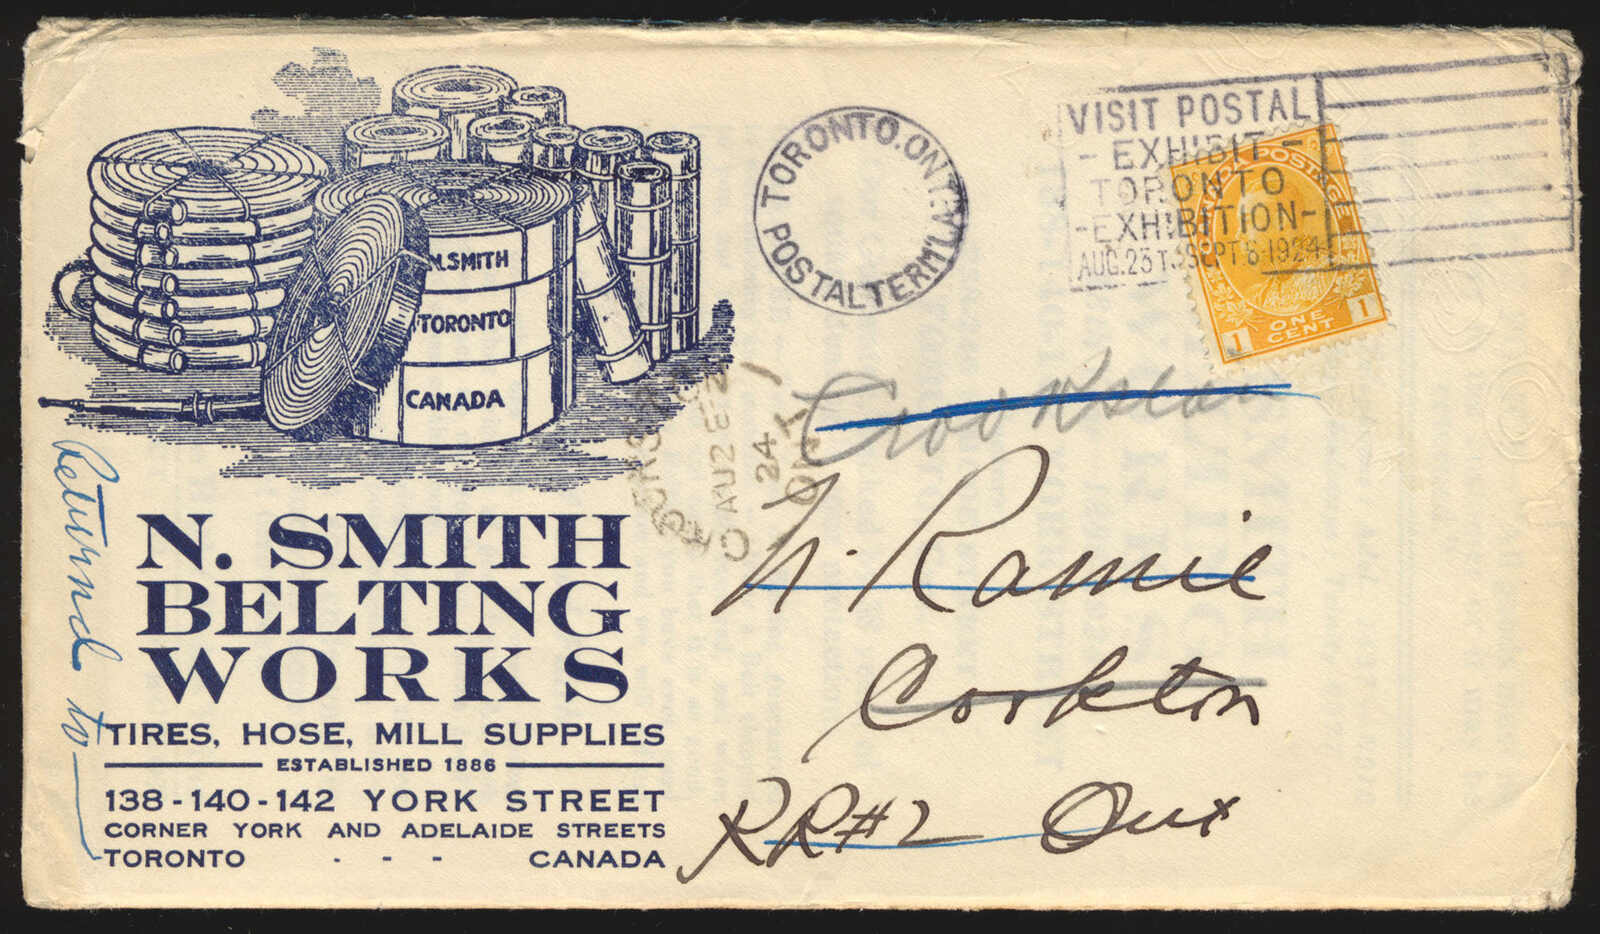 TORONTO.ONT.
POSTAL TERM'L.A.
VISIT POSTAL
- EXHIBIT -
TORONTO
-EXHIBITION-
AUG.23 TO SEPT 6-1924
CANADA POSTAGE
1 ONE CENT 1
N.SMITH
TORONTO
CANADA
AU 2
24
ONT
N. Ramie
Cookton
RR#2 Ont
Returnd to
N. SMITH
BELTING
WORKS
TIRES, HOSE, MILL SUPPLIES
ESTABLISHED 1886
138-140-142 YORK STREET
CORNER YORK AND ADELAIDE STREETS
TORONTO - - - CANADA